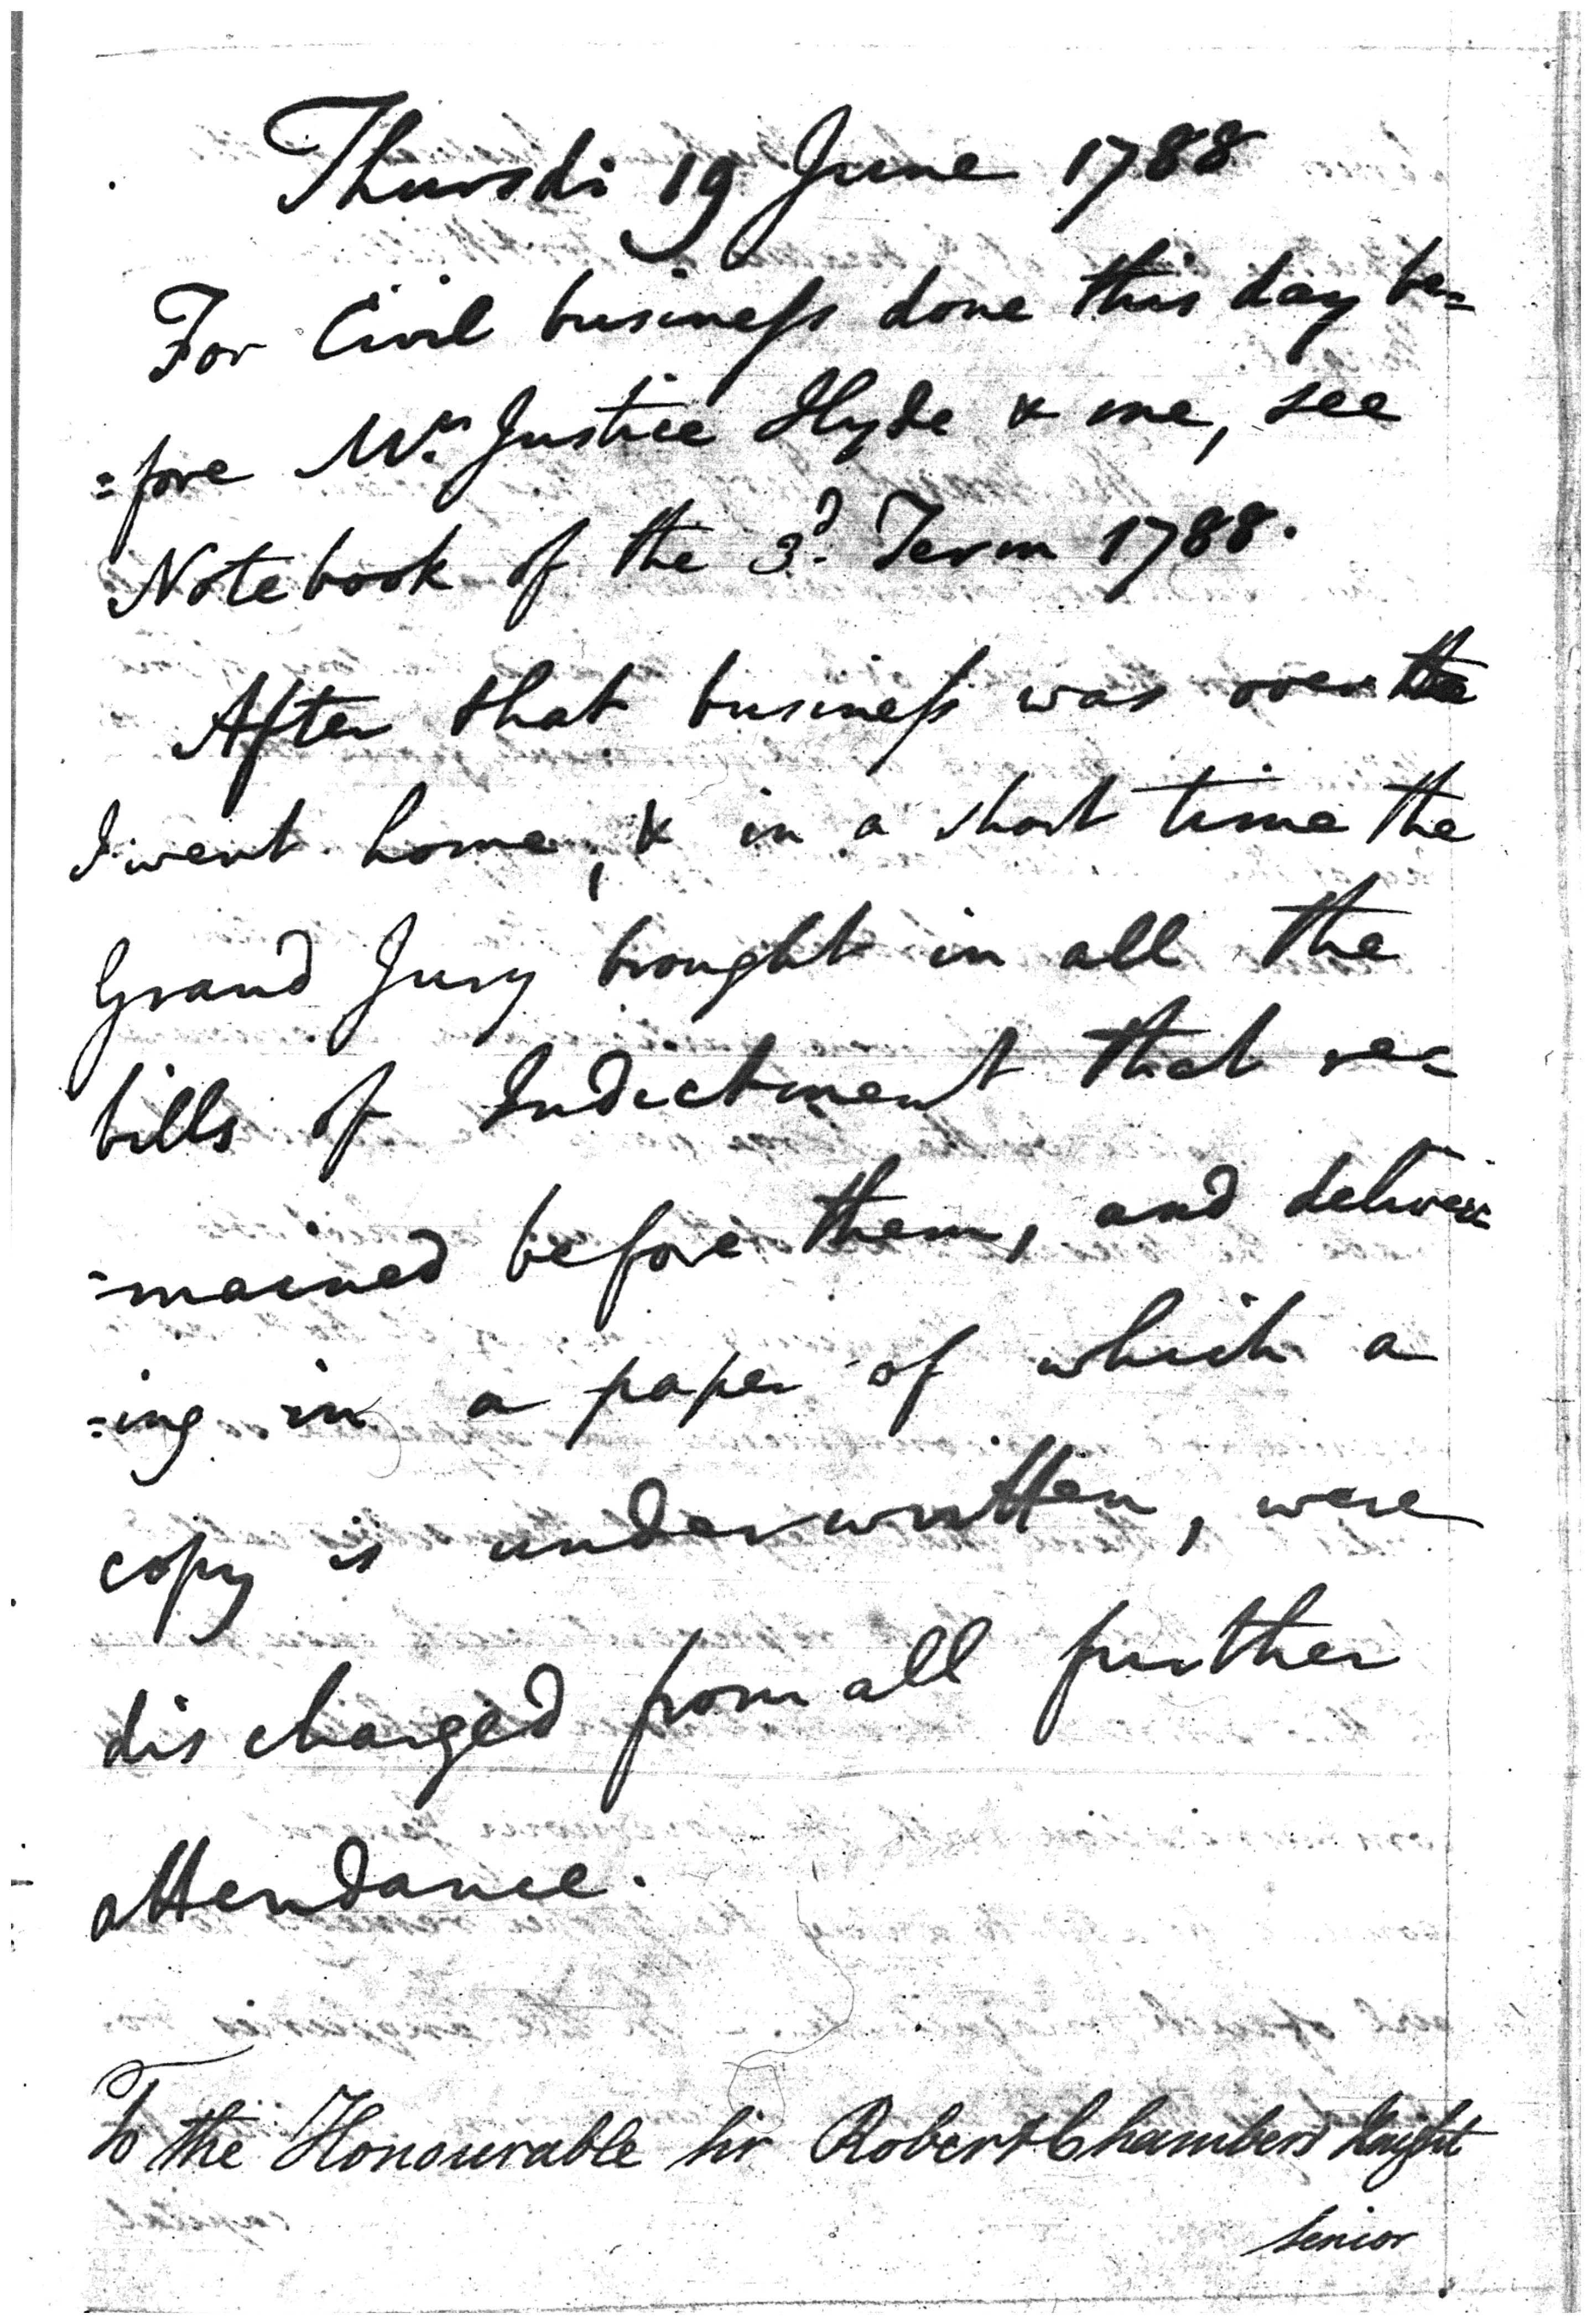 Thursdi 19 June 1788
For Civil business done this day be=
=fore Mr. Justice Hyde & me, see
Notebook of the 3d. Term 1788.
After that business was over the
I went home, & in a short time the
Grand Jury brought in all the
bills of Indictment that re=
=mained before them, and deliver=
=ing in a paper of which a
copy is underwritten, were
discharged from all further
attendance.
To the Honourable Sir Robert Chambers Knight
Senior